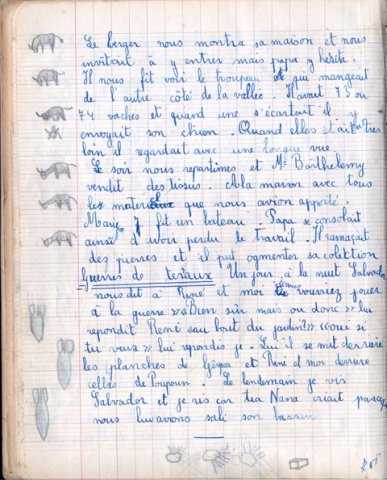 Le berger nous montra sa maison et nous
invitait à y entrer mais papa y hésita.
Il nous fit voir le troupeau et qui mangeait
de l'autre côté de la vallée. Il avait 73 ou
74 vaches et quand une s'écartait il y
envoyait son chien. Quand elles étaient très
loin il regardait avec une longue vue
Le soir nous repartimes et Mr Barthelemy
vendit des tissus. A la maison avec tous
les materiaux que nous avion apporté.
Marie J fit un bateau. Papa se consolait
ainsi d'avoir perdu le travail. Il ramaçait
des pierres et il put ogmenter sa colection
Guerres de
Un jour, à la nuit Salvador
nous dit à René et moi
voudriez jouer
à la guerre »«Bien sûr mais ou donc » lui
repondit René «au bout du jardin!» «oui si
tu veux» lui répondis je. Lui il se mit derriere
les planches de
et René et moi derriere
celles de Poupoun. Le lendemain je vis
Salvador et je ris car tia Nana criait parce que
nous lui avions sali son bassin